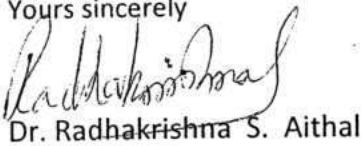 Yours sincerely
Radhakrishna
Dr. Radhakrishna S. Aithal